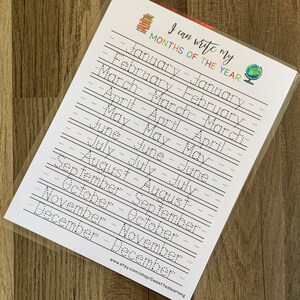 I can write my
MONTHS OF THE YEAR
January January
February February
March March March
April April April
May May May
June June June
July July July
August August
September September
October October
November November
December December